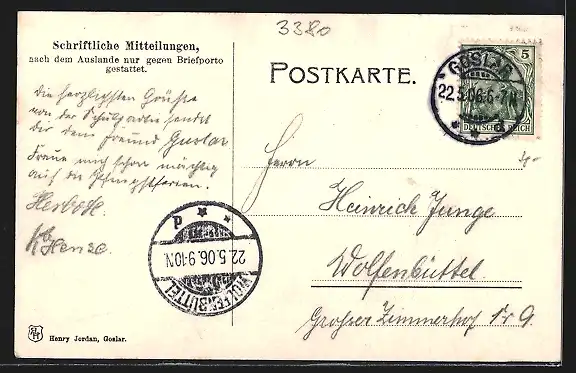 3380
Schriftliche Mitteilungen,
nach dem Auslande nur gegen Briefporto
gestattet.
POSTKARTE.
5
DEUTSCHES REICH
GOSLAR
22.5.06.6-7N
Die herzlichsten Grüsse
von der Schulpartie sendet
dir dein Freund Gustav
Freue mich schon mächtig
auf die Pfingstferien.
Henze.
Herrn
Heinrich Junge
Wolfenbüttel
Grosser Zimmerhof Nr 9.
WOLFENBÜTTEL
22.5.06.9-10N.
P
Henry Jordan, Goslar.